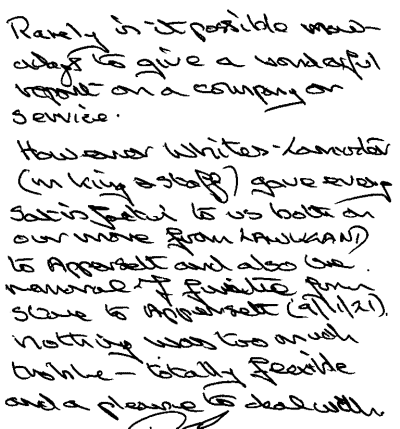 Rarely is it possible now-
adays to give a wonderful
report on a company or
service.
However Whites-Lancaster
(m King & staff) gave every
satisfaction to us both on
our move from
to and also the
removal of furniture from
store to (9/11/21).
nothing was too much
trouble - totally flexible
and a pleasure to deal with.